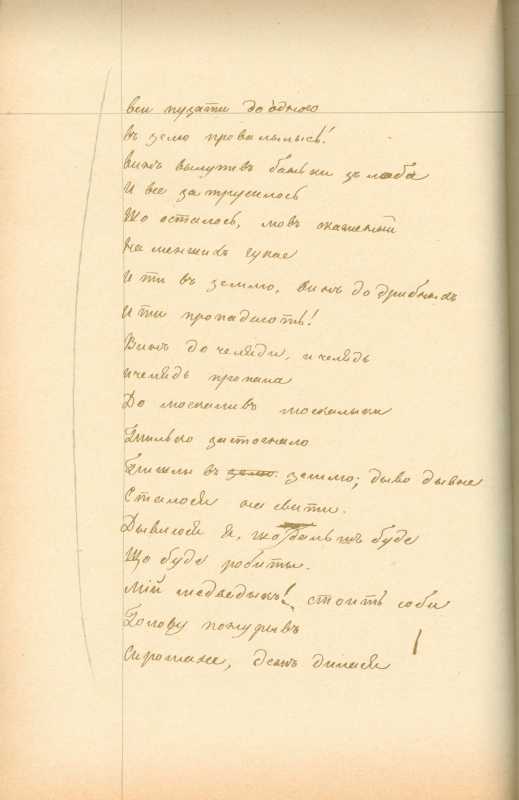 вси пузати до одного
въ земю провалылысь!
винъ вылупывъ баньки зъ лоба
И все затрусилось
Що осталось, мовъ скаженый
На меншихъ гукае
И ти въ землю, винъ до дрибныхъ
И ти пропадають!
Винъ до челяди, и челядь
Ичелядь пропала
До москаливъ москалыки
Тилько застогнало
Пишлы въ землю; дыво дывне
Сталося на свити.
Дывлюся я, що дальшъ буде
Що буде робиты.
Мій медведыкъ! стоить соби
Голову понурывъ
Сиромаха, де жъ дилася